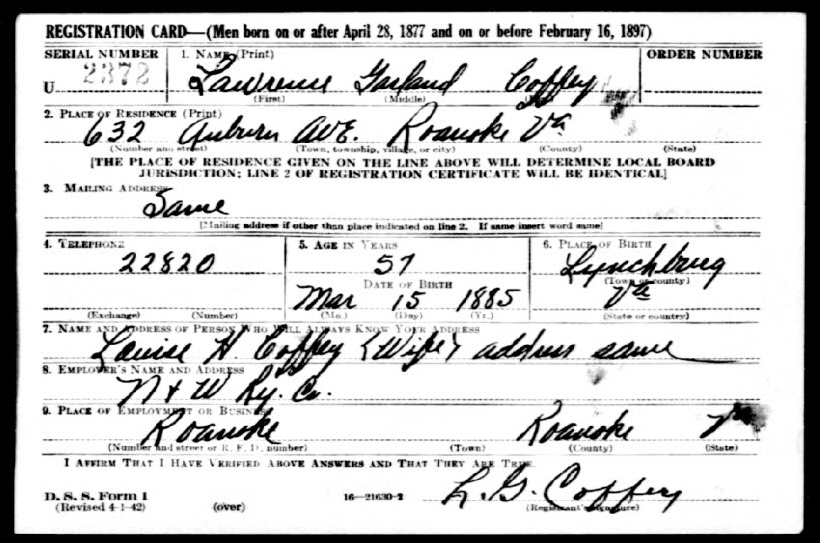 REGISTRATION CARD—(Men born on or after April 28, 1877 and on or before February 16, 1897)
SERIAL NUMBER 1. NAME (Print) ORDER NUMBER
U 2372 Lawrence Garland Coffey
(First) (Middle)
2. PLACE OF RESIDENCE (Print)
632 Auburn AVE. Roanoke Va
(Number and street) (Town, township, village, or city) (County) (State)
[THE PLACE OF RESIDENCE GIVEN ON THE LINE ABOVE WILL DETERMINE LOCAL BOARD
JURISDICTION; LINE 2 OF REGISTRATION CERTIFICATE WILL BE IDENTICAL]
3. MAILING ADDRESS
Same
[Mailing address if other than place indicated on line 2. If same insert word same]
4. TELEPHONE 5. AGE IN YEARS 6. PLACE OF BIRTH
22820 57 Lynchburg
DATE OF BIRTH (Town or county)
Mar 15 1885 Va
(Exchange) (Number) (Mo.) (Day) (Yr.) (State or country)
7. NAME AND ADDRESS OF PERSON WHO WILL ALWAYS KNOW YOUR ADDRESS
Louise H. Coffey (Wife) address same
8. EMPLOYER'S NAME AND ADDRESS
N + W Ry. Co.
9. PLACE OF EMPLOYMENT OR BUSINESS
Roanoke Roanoke Va
(Number and street or R. F. D. number) (Town) (County) (State)
I AFFIRM THAT I HAVE VERIFIED ABOVE ANSWERS AND THAT THEY ARE TRUE.
D. S. S. Form 1
(Revised 4-1-42) (over) 16—21630-2 L. G. Coffey
(Registrant's signature)